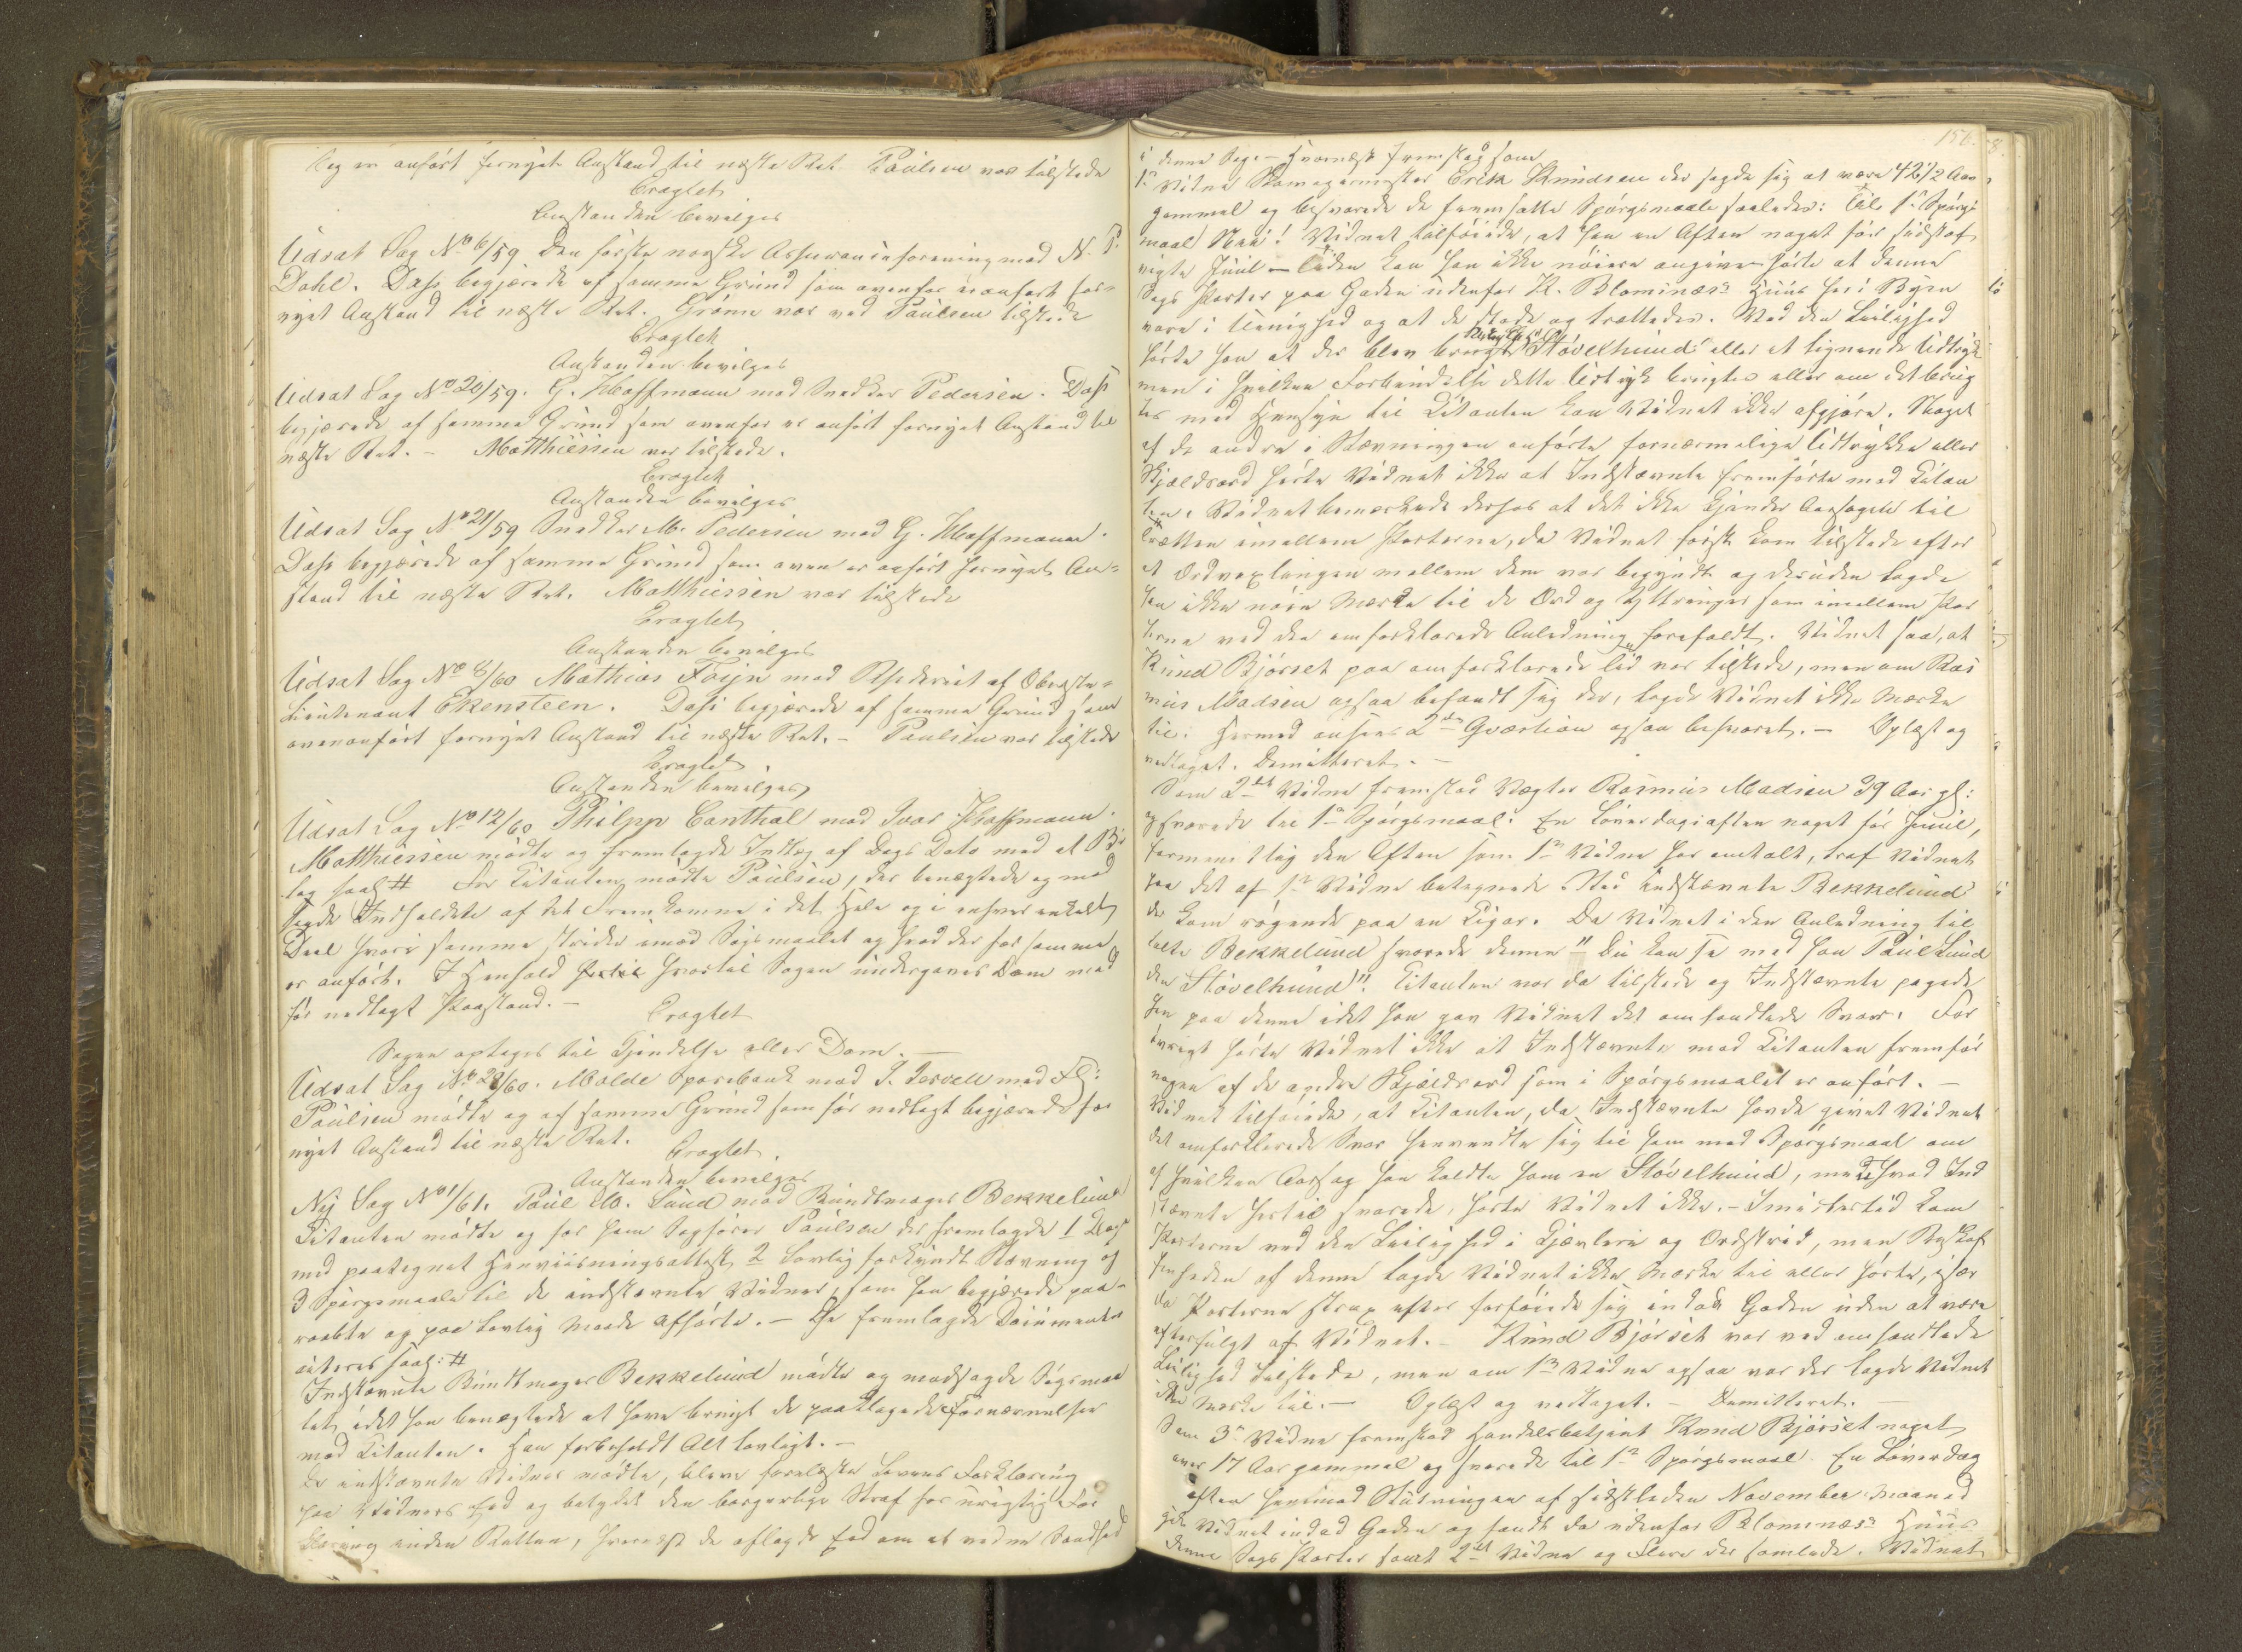 beg er anført fornyet Anstand til næste Ret. Paulsen var tilstede
Eragtet
Anstanden bevilges
Udsat Sag No 6/59 Den første norske Assuranceforening mod N. P.
Dahl. Dass begjærede af samme Grund som ovenfor er anført for-
nyet Anstand til næste Ret. Grønn var ved Paulsen tilstede
Eragtet
Anstanden bevilges
Udsat Sag No 20/59. G. Hoffmann mod Snedker Pedersen. Dass
begjærede af samme Grund som ovenfor er anført fornyet Anstand til
næste Ret. – Matthiessen var tilstede.
Eragtet
Anstanden bevilges
Udsat Sag No 21/59 Snedker M. Pedersen mod G. Hoffmann.
Dass begjærede af samme Grund som oven er anført fornyet An-
stand til næste Ret. Matthiessen var tilstede
Eragtet
Anstanden bevilges
Udsat Sag No 8/60 Mathias Foijn mod Opbudsboet af Oberst-
Lieutenant Ekensteen. Dass begjærede af samme Grund som
ovenanført fornyet Anstand til næste Ret. – Paulsen var tilstede
Eragtet
Anstanden bevilges
Udsat Sag No 12/60 Philpp Canthal mod Ivar Hoffmann.
Matthiessen mødte og fremlagde Indlæg af Dags Dato med et Bi-
lag saal # For Citanten mødte Paulsen, der benægtede og mod
sagde Indholdet af det Fremkomne i det Hele og i enhver enkelt
Deel hvori samme strider imod Søgsmaalet og hvad der for samme
er anført. I Henhold hvortil Sagen undergaves Dom med
før nedlagt Paastand. –
Eragtet
Sagen optages til Kjendelse eller Dom. –
Udsat Sag No 28/60. Molde Sparebank mod P. Tervell med Fl:
Paulsen mødte og af samme Grund som før nedlagt begjærede for
nyet Anstand til næste Ret.
Eragtet
Anstanden bevilges
Ny Sag No 1/61. Paul M. Lund mod Bundtmager Bekkelund
Citanten mødte og for ham Sagfører Paulsen der fremlagde 1 Klage
med paategnet Henviisningsattest 2 lovlig forkyndt Stævning og
3 Spørgsmaale til de indstævnte Vidner, som han begjærede paa-
raabte og paa lovlig Maade afhørte. – De fremlagde Documenter
acteres saal: #
Indstævnte Bundtmager Bekkelund mødte og modsagde Søgsmaa
let, idet han benægtede at have brugt de paaklagede Fornærmelser
mod Citanten. Han forbeholdt Alt lovligt. –
De indstævnte Vidner mødte, bleve forelæste Lovens Forklaring
paa Vidners Eed og betydet den borgerlige Straf for urigtig For
klaring inden Retten, hvornæst de aflagde Eed om at vidne Sandhed
156.
i denne Sag. – Hvornæst fremstod som
1ste Vidne Skomagermester Erik Knudsen der sagde sig at være 42 1/2 Aar
gammel og besvarede de fremsatte Spørgsmaale saaledes: Til 1ste Spørgs
maal Nei! Vidnet tilføiede, at han en Aften noget før sidstaf
vigte Juul – Tiden kan han ikke nøiere angive – hørte at denne
Sags Parter paa Gaden udenfor K. Blominæs's Huus her i Byen
vare i Uenighed og at de stode og trættedes. Ved den Leilighed
hørte han at der blev brugt "Støvelhund" eller et lignende Udtryk
men i hvilken Forbindelse dette Udtryk brugtes eller om det brug
tes med Hensyn til Citanten kan Vidnet ikke afgjøre. Noget
af de andre i Stævningen anførte fornærmelige Udtrykke eller
Skjældsord hørte Vidnet ikke at Indstævnte fremførte mod Citan
ten. Vidnet bemærkede derhos at det ikke kjender Aarsagen til
Trætten imellem Parterne, da Vidnet først kom tilstede efter
at Ordvexlingen mellem dem var begyndt og desuden lagde
han ikke nøie Mærke til de Ord og Yttringer som imellem Par
terne ved den omforklarede Anledning forefaldt. Vidnet saa, at
Knud Bjørset paa omforklarede Tid var tilstede, men om Ras
mus Madsen ogsaa befandt sig der, lagde Vidnet ikke Mærke
til. Hermed ansees 2den Qvæstion ogsaa besvaret. – Oplæst og
vedtaget. Demitteret. –
Som 2det Vidne fremstod Vægter Rasmus Madsen 39 Aar gl:
og svarede til 1ste Spørgsmaal: En Løverdagsaften noget før Juul,
formentlig den Aften som 1ste Vidne har omtalt, traf Vidnet
paa det af 1ste Vidne betegnede Sted Indstævnte Bekkelund
der kom røgende paa en Cigar. Da Vidnet i den Anledning til
talte Bekkelund svarede denne "Du kan se med han Paul Lund
den Støvelhund". Citanten var da tilstede og Indstævnte pegede
hen paa denne idet han gav Vidnet det omhandlede Svar. For
øvrigt hørte Vidnet ikke at Indstævnte mod Citanten fremfør
nogen af de andre Skjældsord som i Spørgsmaalet er anført. –
Vidnet tilføiede, at Citanten, da Indstævnte havde givet Vidnet
det omforklarede Svar henvendte sig til ham med Spørgsmaal om
af hvilken Aarsag han kaldte ham en Støvelhund, men hvad Ind
stævnte hertil svarede, hørte Vidnet ikke. – Imidlertid kom
Parterne ved den Leilighed i Kjævleri og Ordstrid, men Beskaf
fenheden af denne lagde Vidnet ikke Mærke til eller hørte, især
da Parterne strax efter forføiede sig indad Gaden uden at være
efterfulgt af Vidnet. – Knud Bjørset var ved omhandlede
Leilighed tilstede, men om 1ste Vidne ogsaa var der lagde Vidnet
ikke Mærke til. – Oplæst og vedtaget. – Demitteret. –
Som 3die Vidne fremstod Handelsbetjent Knud Bjørset noget
over 17 Aar gammel og svarede til 1ste Spørgsmaal: En Løverdag
aften henimod Slutningen af sidstleden November Maaned
gik Vidnet indad Gaden og fandt da udenfor Blominæs's Huus
denne Sags Parter samt 2det Vidne og Flere der samlede. Vidnet